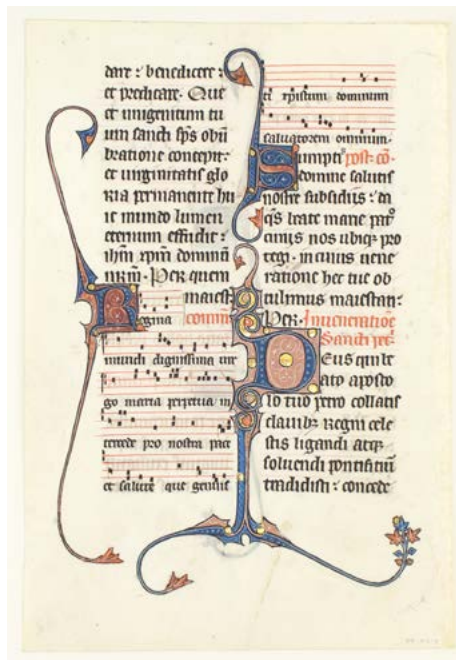 dare : benedicere :
et predicare. Que
et unigenitum tu
um sancti sp̄s obū
bratione concepit :
et virginitatis glo
ria permanente hu
ic mundo lumen
eternum effudit :
ihm̄ xp̄m dominū
nr̄m. Per quem
maiest
Regina comm̄
mundi dignissima vir
go maria perpetua in
tercede pro nostra pace
et salute que genuis
ti xpistum dominum
saluatorem omnium.
Sumptis post cō.
domine salutis
nostre subsidiis : da
q̄s beate marie patͦ
cinijs nos ubiq; pro
tegi. in cuius uene
ratione hec tue ob
tulimus maiestati :
Per. In ueneratiōe
Sancti pet.
Deus qui be
ato aposto
lo tuo petro collatis
clauibꝫ regni cele
stis ligandi atq;
soluendi pontifitiū
tradidisti : concede